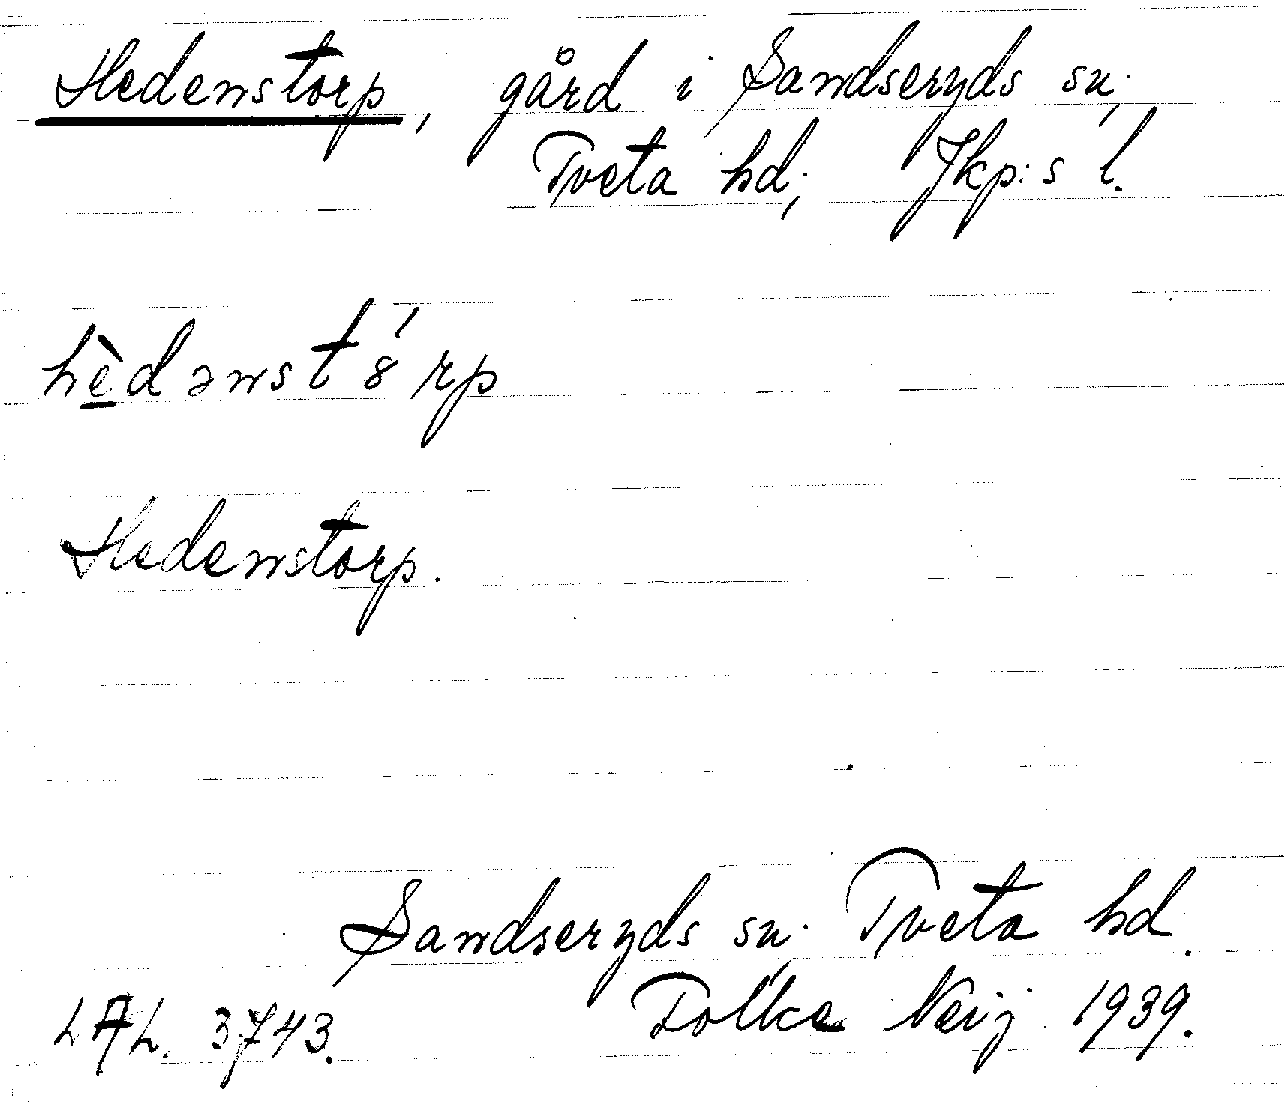 Hedenstorp, gård i Sandseryds sn,
Tveta hd, Jkp:s l.
hèdənst8́rp
Hedenstorp.
Sandseryds sn. Tveta hd.
LAL. 3743. Folke Neij 1939.